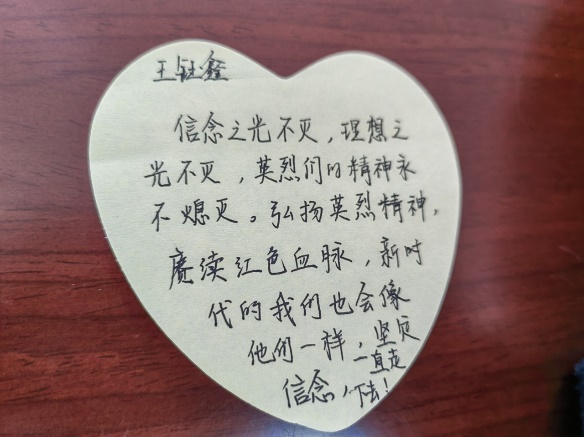 王钰鑫
信念之光不灭，理想之
光不灭，英烈们的精神永
不熄灭。弘扬英烈精神，
赓续红色血脉，新时
代的我们也会像
他们一样，坚定
信念，一直走
下去！